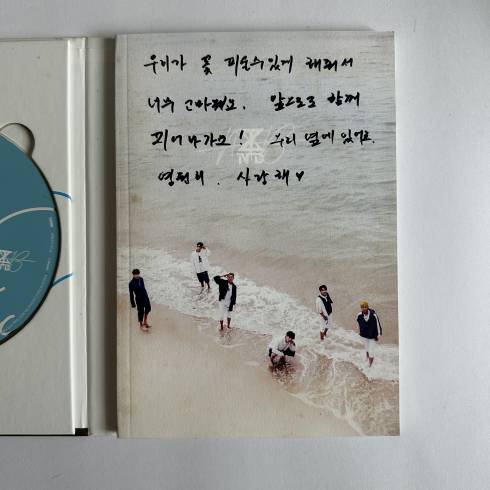 우리가 꽃 피울수있게 해줘서
너무 고마워요. 앞으로도 함께
피어나가요! 우리 옆에 있어요.
영원히. 사랑해♥